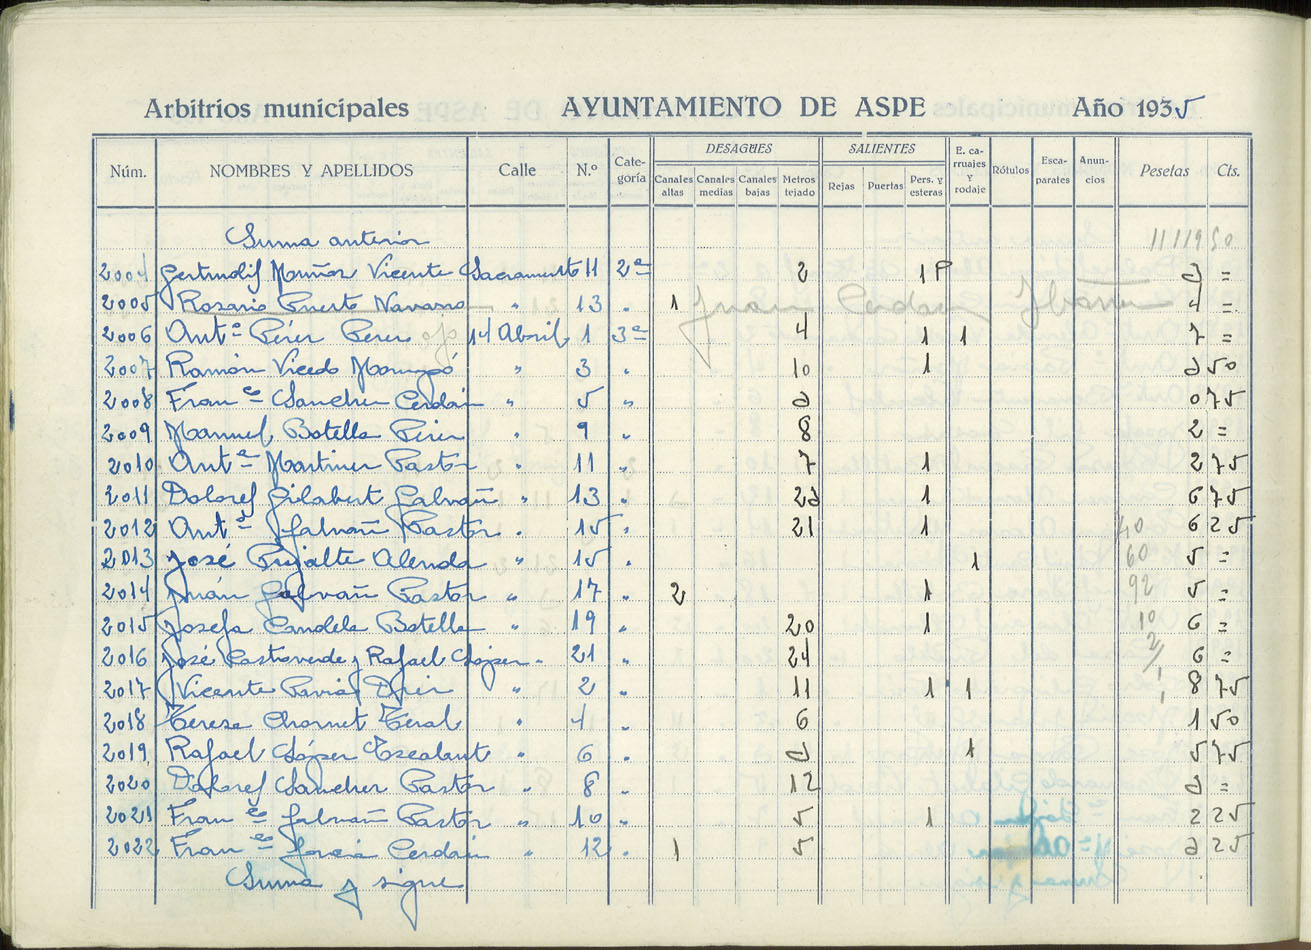 Arbitrios municipales AYUNTAMIENTO DE ASPE Año 1935
Núm. NOMBRES Y APELLIDOS Calle N.º Categoría DESAGÜES Canales altas Canales medias Canales bajas Metros tejado SALIENTES Rejas Puertas Pers. y esteras E. carruajes y rodaje Rótulos Escaparates Anuncios Pesetas Cts.
Suma anterior 11119 50
2004 Gertrudis Muñoz Vicente Sacramento 11 2ª 2 1 P 3 =
2005 Rosario Puerto Navarro " 13 . 1 Juan Cerdán 4 =
2006 Antº Pérez Pérez 14 Abril 1 3ª 4 1 1 7 =
2007 Ramón Vicedo Mompó " 3 . 10 1 3 50
2008 Franco Sanchez Cerdán " 5 " 3 0 75
2009 Manuel Botella Pérez . 9 " 8 2 =
2010 Antº Martinez Pastor " 11 " 7 1 2 75
2011 Dolores Gilabert Galvañ " 13 " 23 1 6 75
2012 Antº Galvañ Pastor . 15 . 21 1 40 6 25
2013 José Prijalte Alenda " 15 . 1 60 5 =
2014 Juán Galvañ Pastor " 17 " 2 1 92 5 =
2015 Josefa Candela Botella " 19 " 20 1 10 6 =
2016 José Castroverde y Rafael López . 21 " 24 6 =
2017 Vicente Pavía " 2 " 11 1 1 8 75
2018 Teresa Chornet Teral " 4 " 6 1 50
2019 Rafael López Escalante " 6 . 3 1 5 75
2020 Dolores Sanchez Pastor " 8 " 12 3 =
2021 Franco Galvañ Pastor " 10 " 5 1 2 25
2022 Franco García Cerdán " 12 . 1 5 3 25
Suma y sigue